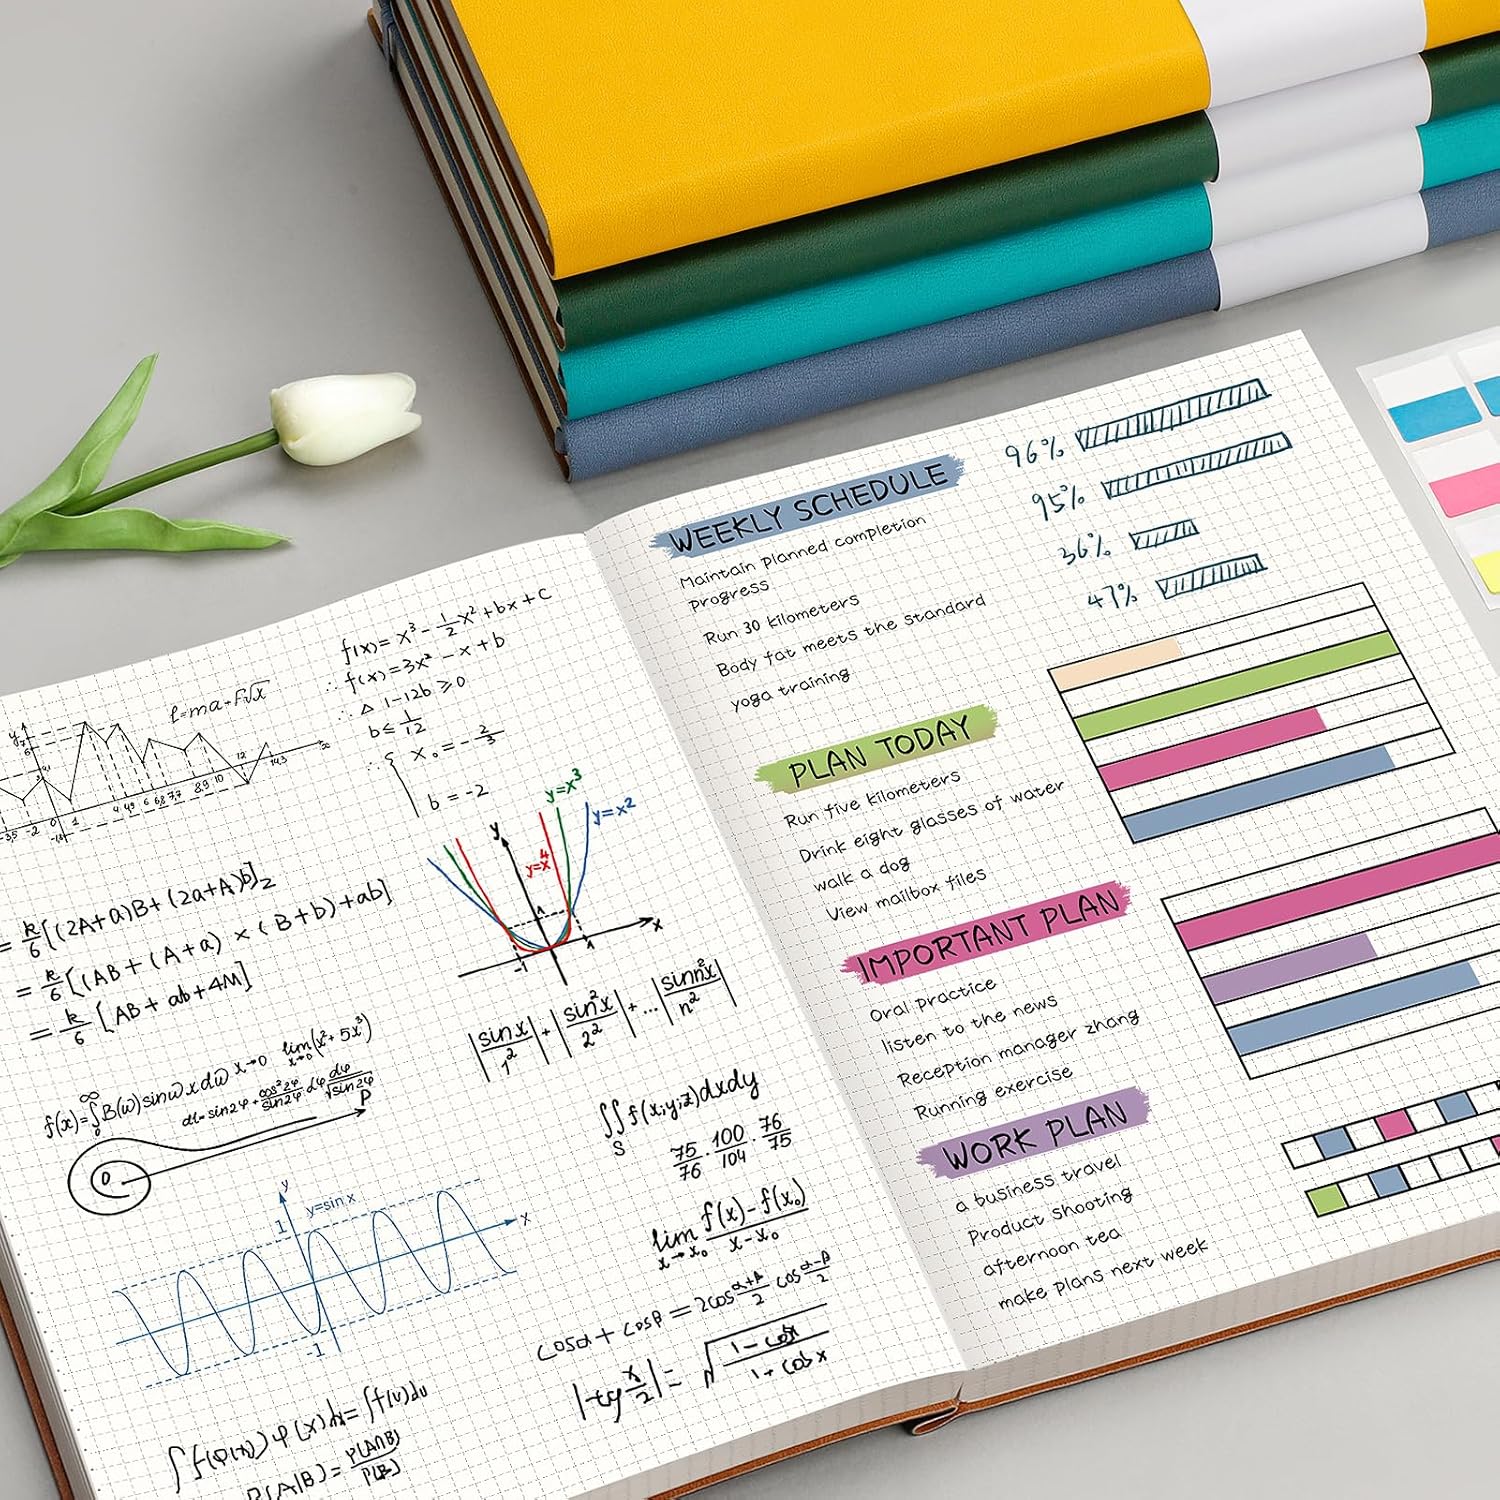 f(x)= x³ - 1/2 x² + bx + c
∴ f(x) = 3x² - x + b
∴ △ 1-12b ≥ 0
b ≤ 1/12
∴ { x₀ = - 2/3
b = -2
ℓ=ma+F√x
y=x³
y=x²
y=x⁴
y
x
1
-1
1
= k/6 [(2A+a)B+(2a+A)b]₂
= k/6 [(AB+(A+a)×(B+b)+ab]
= k/6 [AB+ab+4M]
|sin x/1²|+|sin²x/2²|+...|sinn²x/n²|
f(x)=∫₀^∞ B(ω)sinωxdω x→0 lim x→0 (x²+5x³)
P
0
∬S f(x;y;z)dxdy
75/76 · 100/104 · 76/75
lim x→x₀ f(x)-f(x₀)/x-x₀
y
y=sin x
1
x
-1
cosα + cosβ = 2cos α+β/2 cos α-β/2
|tg x/2| = √
∫f(φ(x))φ(x)dx=∫f(u)du
P(A|B) = P(A∩B)/P(B)
WEEKLY SCHEDULE
Maintain planned completion
progress
Run 30 kilometers
Body fat meets the standard
yoga training
96%
95%
36%
47%
PLAN TODAY
Run five kilometers
Drink eight glasses of water
walk a dog
View mailbox files
IMPORTANT PLAN
Oral practice
listen to the news
Reception manager zhang
Running exercise
WORK PLAN
a business travel
Product shooting
afternoon tea
make plans next week